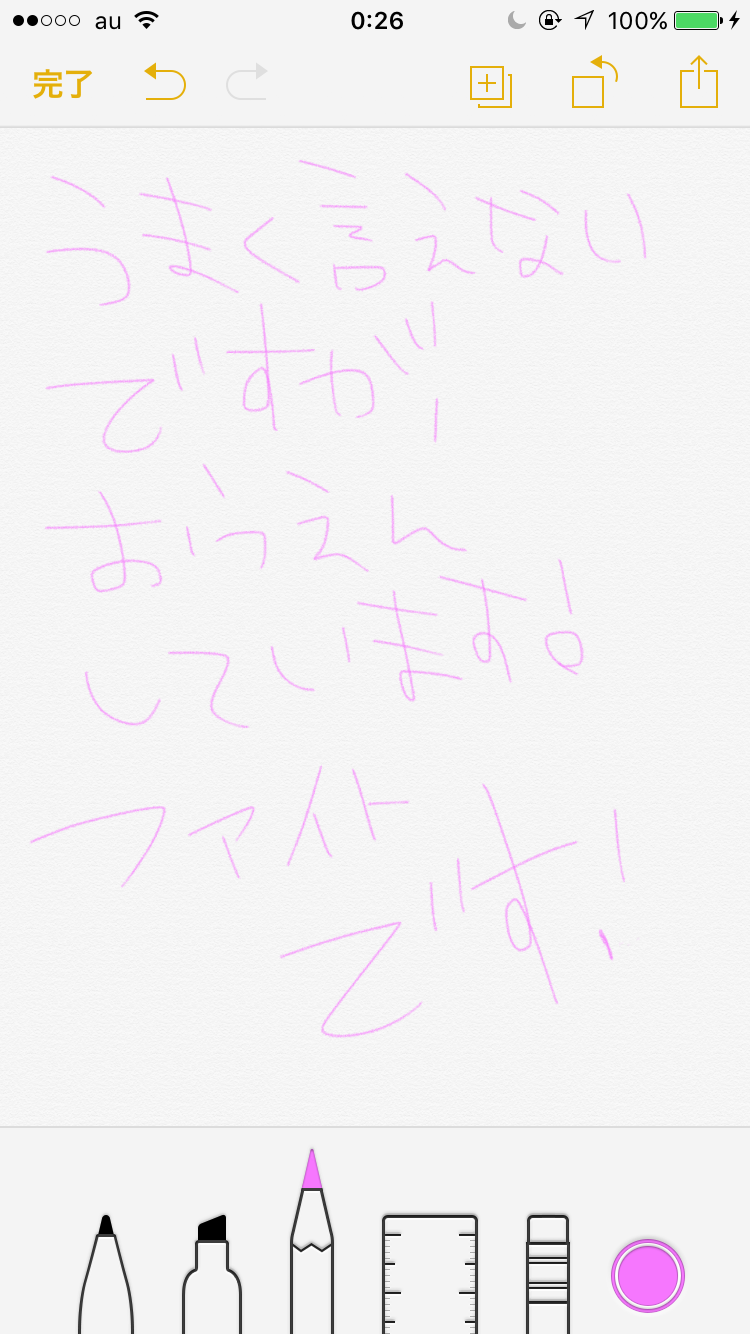 au 0:26 100%
完了
うまく言えない
ですが、
おうえん
しています!
ファイト
です!